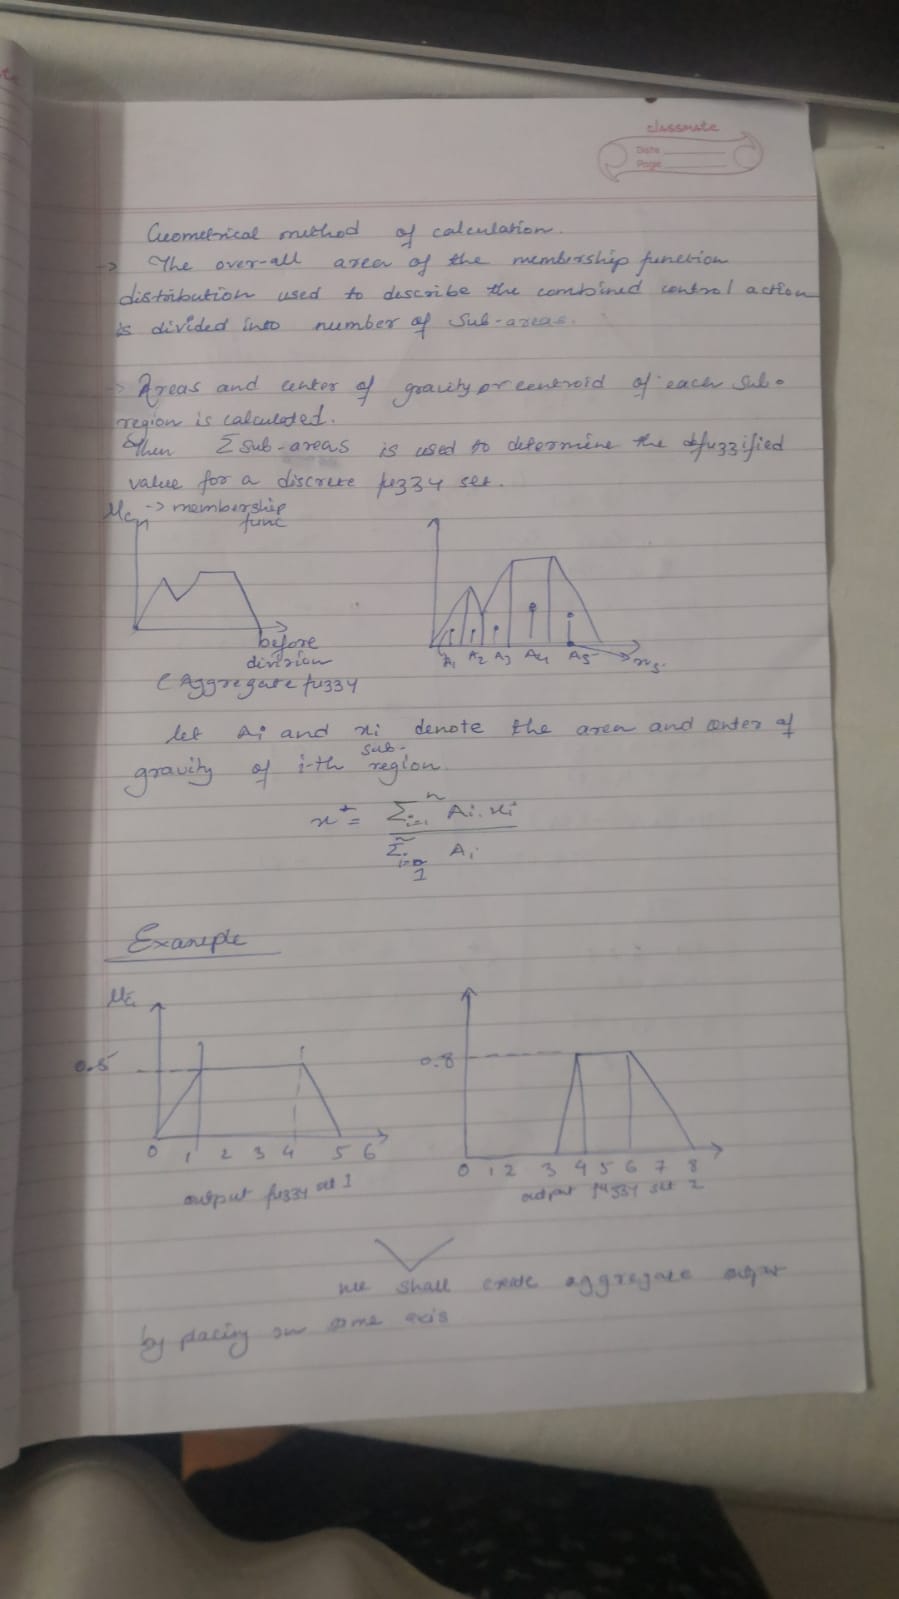 classmate
Date
Page
Geometrical method of calculation.
-> The over-all area of the membership function
distribution used to describe the combined control action
is divided into number of Sub-areas.
-> Areas and center of gravity or centroid of each sub-
region is calculated.
Then Σ sub-areas is used to determine the defuzzified
value for a discrete fuzzy set.
μc -> membership
func
before
division
(Aggregate fuzzy
A1 A2 A3 A4 A5
let Ai and xi denote the area and center of
sub-
gravity of i-th region.
x* = Σ i=1 n Ai.xi
Σ i=1 n Ai
Example
μc
0.5
0.8
0 1 2 3 4 5 6
0 1 2 3 4 5 6 7 8
output fuzzy set 1
output fuzzy set 2
we shall create aggregate output
by placing on same axis